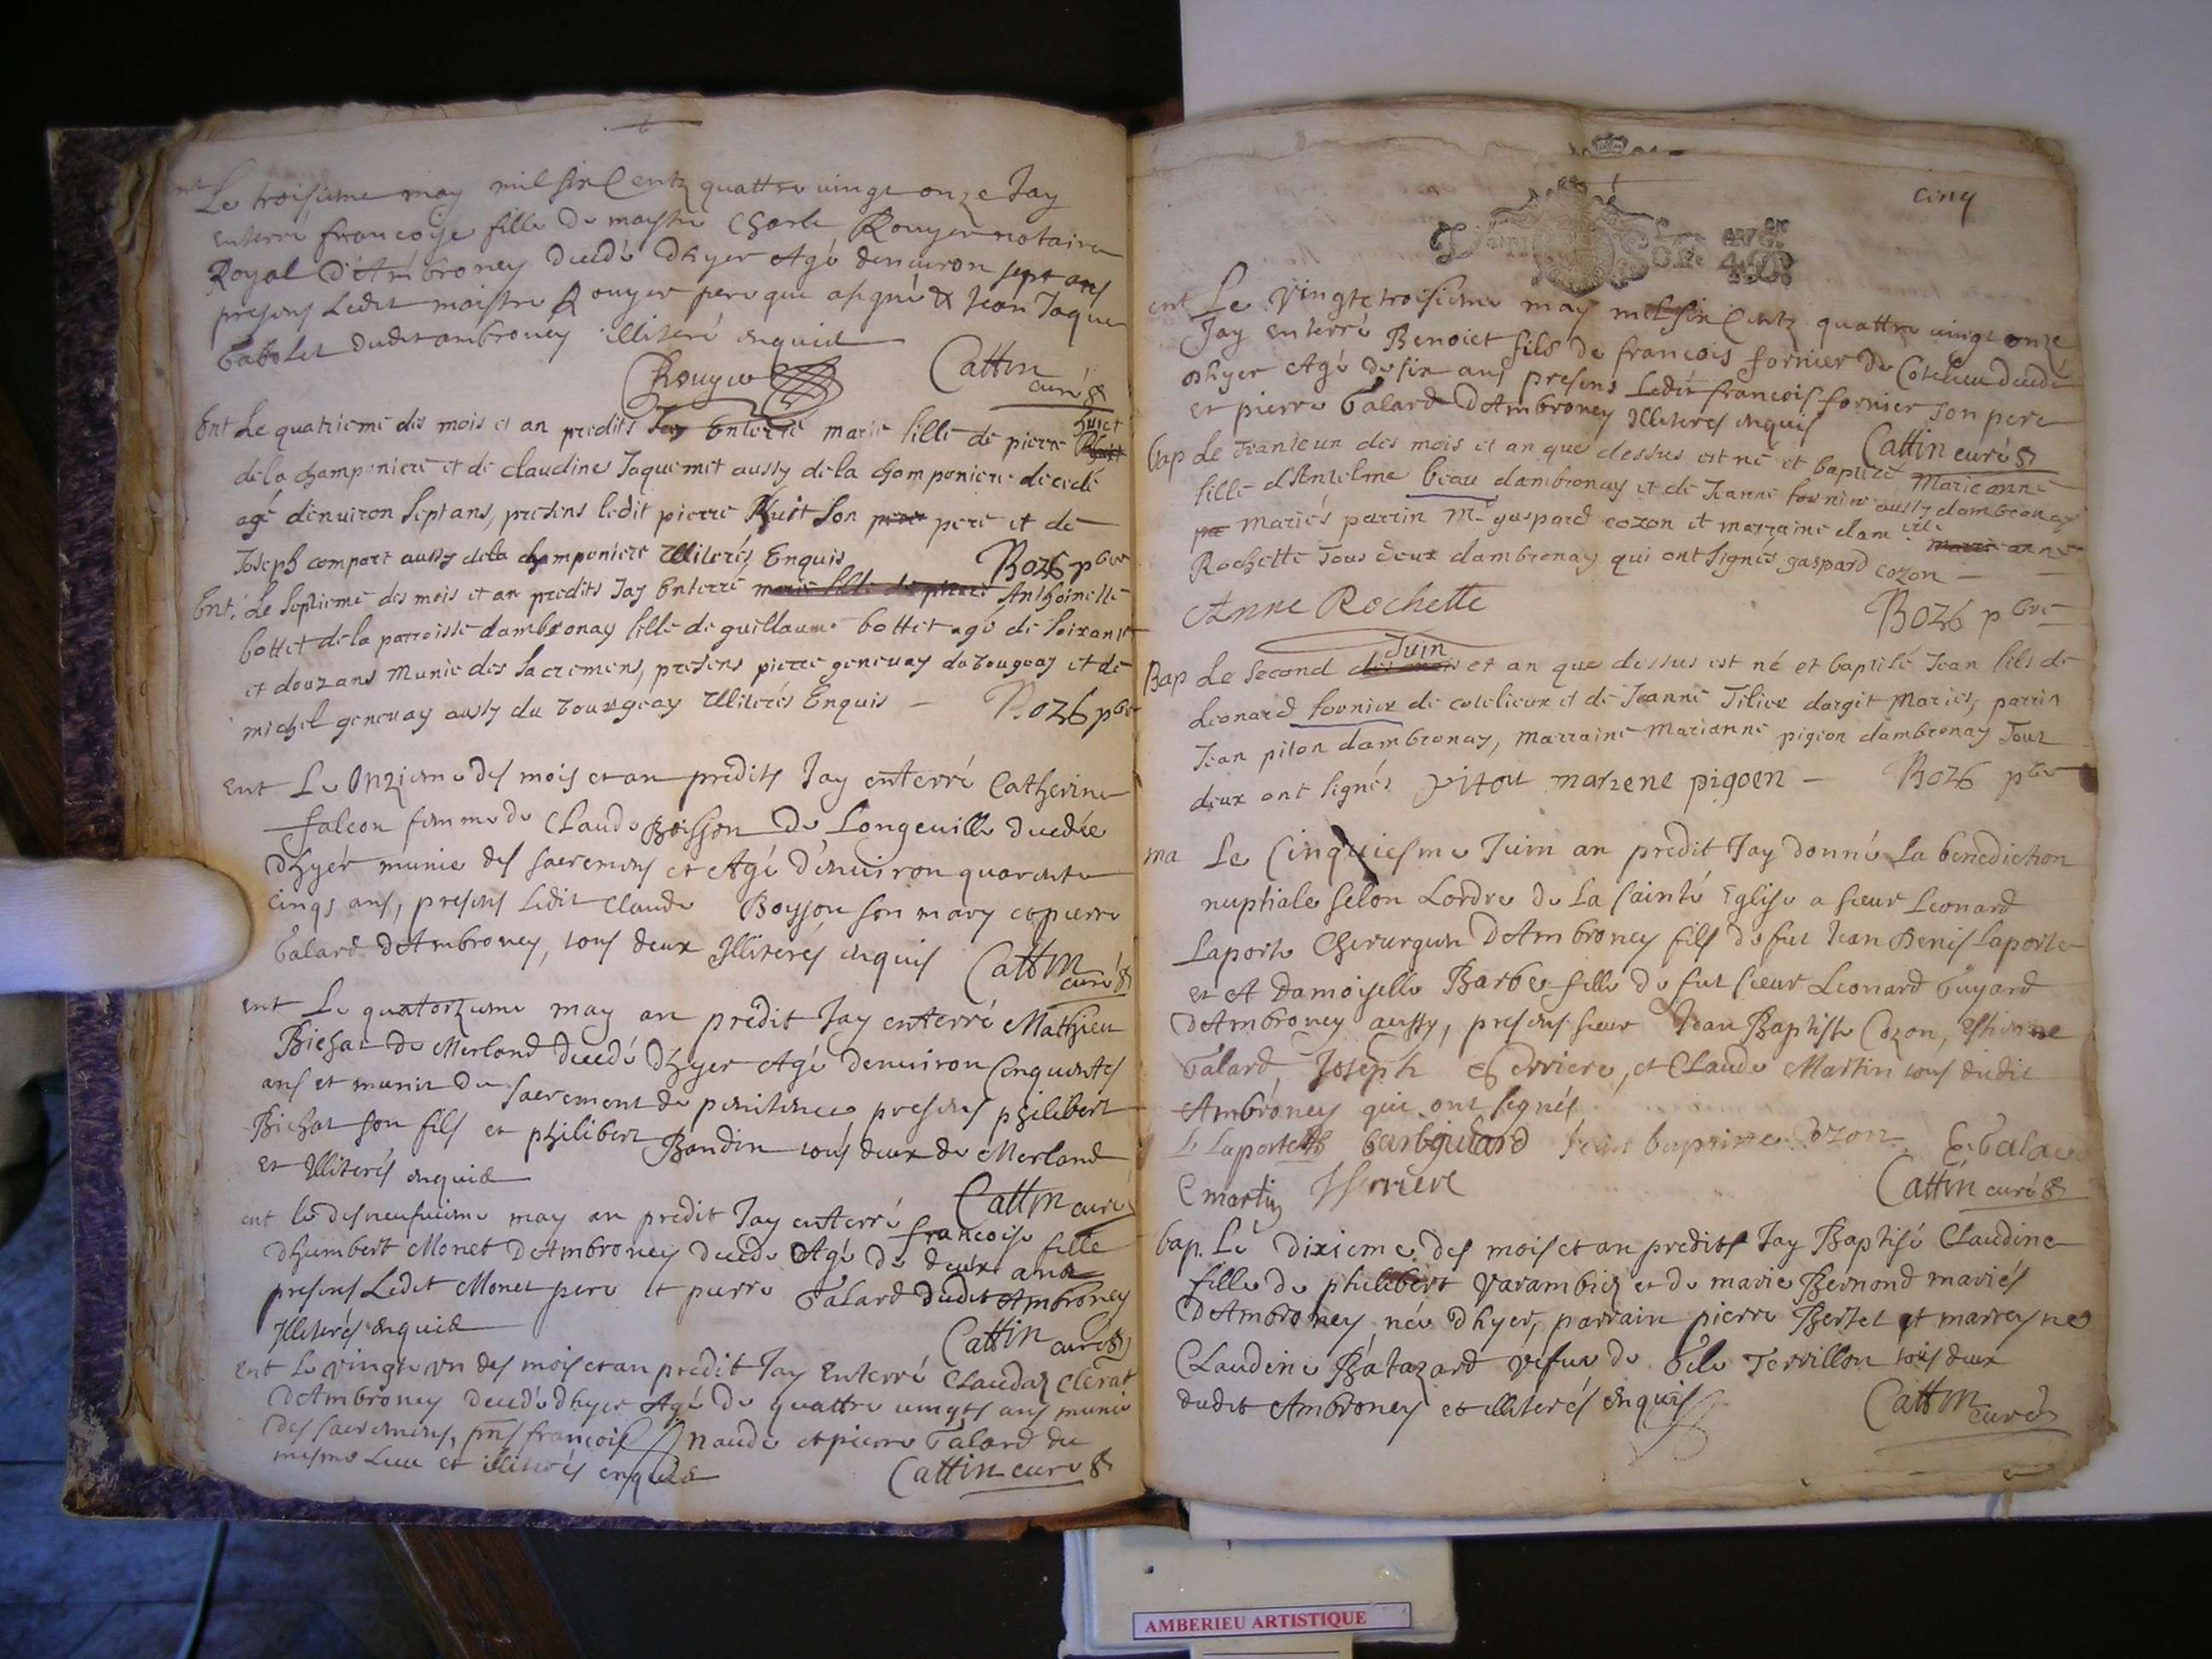 Le troisieme may mil six Centz quattre vingt onze Jay
enterré francoise fille de maistre Charle Rouyer notaire
Royal d'Ambroney decedé dhyer Agé denuiron sept ans
presens Ledit maistre Rouyer pere que a signé & Jean Jaque
dudit ambroney illiteré enquis
Rouyer Cattin
curé
Ent Le quatrieme des mois et an predits Jay Enterré marie fille de pierre huict
de la championiere et de claudine Jaquemet aussy de la championiere decedé
agé denuiron sept ans, presens ledit pierre Huit son pere pere et de
Joseph compare aussy dela championiere Illiterés Enquis Bozb pbre
Ent. Le septieme des mois et an predits Jay Enterré marie fille de pierre Anthoinette
bottet de la parroisse dambronay fille de guillaume bottet agé de soixante
et douz ans Munie des sacremens, presens pierre geneuay et de
michel geneuay aussy du Illiterés Enquis Bozb pbre
Ent Le Onzieme des mois et an predits Jay enterré Catherine
falcon femme de Claude Boisson De Longeville decedée
dhyér munie des sacremens et Agé d'enuiron quarente
cinqs ans, presens Ledit Claude Boysson son mary et pierre
Talard dAmbroney, tous deux Illiterés enquis Cattin
curé
ent Le quatorzieme may an predit Jay enterré Mathieu
Bichat de Merland decedé dhyer Agé denuiron Cinquentes
ans et munit du sacrement de penitence presens philibert
Bichat son fils et philibert Baudin tous deux de Merland
et Illiterés enquis
Cattin curé
ent le disneufuieme may an predit Jay enterré francoise fille
dhumbert Monet dAmbroney decedé Agé de deux ans
presens Ledit Monet pere et pierre Talard dudit Ambroney
Illiterés enquis
Cattin curé
Ent Le vingt vn des mois et an predit Jay Enterré Claudaz Clerat
dAmbroney decedé dhyer Agé de quattre vingts ans munie
des sacremens, pns francois et pierre Talard du
mesme Lieu et illiterés enquis Cattin curé
cinq
ent Le vingtetroisieme may mil six Centz quattre vingt onze
Jay enterré Benoict fils de francois fornier de Cotelieu decedé
dhyer Agé de six ans presens Ledit francois fornier son pere
et pierre Talard dAmbroney Illiteres enquis
Cattin curé
bap Le tranteun des mois et an que dessus est né et baptizé Marieanne
fille dAntelme beau dambronay et de Jeanne fournier aussy dambronay
mariés parrin Mr gaspard cozon et marraine dam lle marie anne
Rochette Tous deux dambronay qui ont signés gaspard cozon
Anne Rochette Bozb pbre
Juin
Bap Le second des mois et an que dessus est né et baptisé Jean fils de
Leonard fournier de cotelieux et de Jeanne Tilier dargit Mariés, parrin
Jean piton dambronay, marraine Marianne pigeon dambronay Tout
deux ont signés pitou mariene pigoen Bozb pbre
ma Le Cinquiesme Juin an predit Jay donné La benediction
nuptiale selon Lordre de La sainte Eglise a sieur Leonard
Laporte Chirurgien dAmbroney fils de fut Jean Denis Laporte
et A Damoiselle Barbe fille de fut sieur Leonard Guyard
dAmbroney aussy, presens sieur Jean Baptiste Cozon, Estienne
Talard, Joseph Serriere, et Claude Martin tous dudit
Ambroney qui ont signés
L Laporte barbguiard Jean baptiste Cozon E. Talard
C martin J serriere Cattin curé
bap. Le dixieme des mois et an predits Jay Baptisé Claudine
fille de philibert Varambiez et de marie Bernond mariés
dAmbroney, née dhyer, parrain pierre Bertet et marreyne
Claudine Batazard vefue de Tervillon tous deux
dudit Ambroney et illiterés enquis Cattin
curé
AMBERIEU ARTISTIQUE